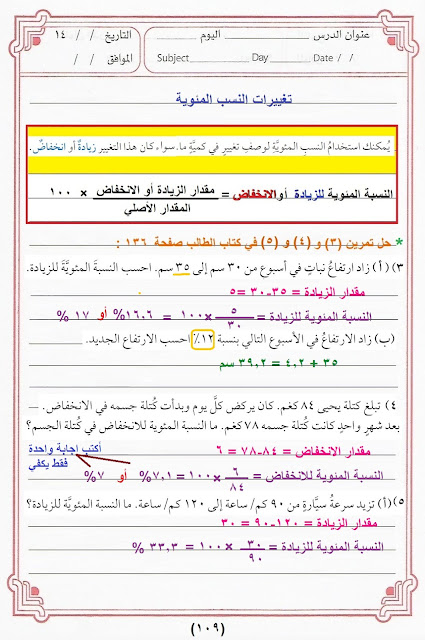 عنوان الدرس ــــــــــــ اليوم ــــــــــــ التاريخ / / ١٤
Subject ــــــــــــ Day ــــــــــــ Date / / الموافق / /
تغييرات النسب المئوية
يُمكنك استخدامُ النسبِ المئويَّةِ لوصفِ تغييرٍ في كميَّةٍ ما، سواء كان هذا التغيير زيادةٌ أو انخفاضٌ.
النسبة المئوية للزيادة أوالانخفاض = مقدار الزيادة أو الانخفاض / المقدار الأصلي × ١٠٠
* حل تمرين (٣) و (٤) و (٥) في كتاب الطالب صفحة ١٣٦ :
٣) (أ) زاد ارتفاعُ نباتٍ في أسبوع من ٣٠ سم إلى ٣٥ سم. احسب النسبةَ المئويَّةَ للزيادة.
مقدار الزيادة = ٣٥-٣٠ = ٥
النسبة المئوية للزيادة = ٥/٣٠ × ١٠٠ = ١٦,٦% أو ١٧ %
(ب) زاد الارتفاعُ في الأسبوع التالي بنسبة ١٢٪ احسب الارتفاع الجديد.
٣٥ + ٤,٢ = ٣٩,٢ سم
٤) تبلغ كتلة يحيى ٨٤ كغم. كان يركض كلَّ يوم وبدأت كُتلة جسمه في الانخفاض.
بعد شهرٍ واحدٍ كانت كُتلة جسمه ٧٨ كغم. ما النسبة المئوية للانخفاض في كتلة الجسم؟
مقدار الانخفاض = ٨٤-٧٨ = ٦
أكتب إجابة واحدة
فقط يكفي
النسبة المئوية للانخفاض = ٦/٨٤ × ١٠٠ = ٧,١% أو ٧%
٥) (أ) تزيد سرعةُ سيَّارةٍ من ٩٠ كم/ ساعة إلى ١٢٠ كم/ ساعة. ما النسبة المئوية للزيادة؟
مقدار الزيادة = ١٢٠-٩٠ = ٣٠
النسبة المئوية للزيادة = ٣٠/٩٠ × ١٠٠ = ٣٣,٣ %
(١٠٩)